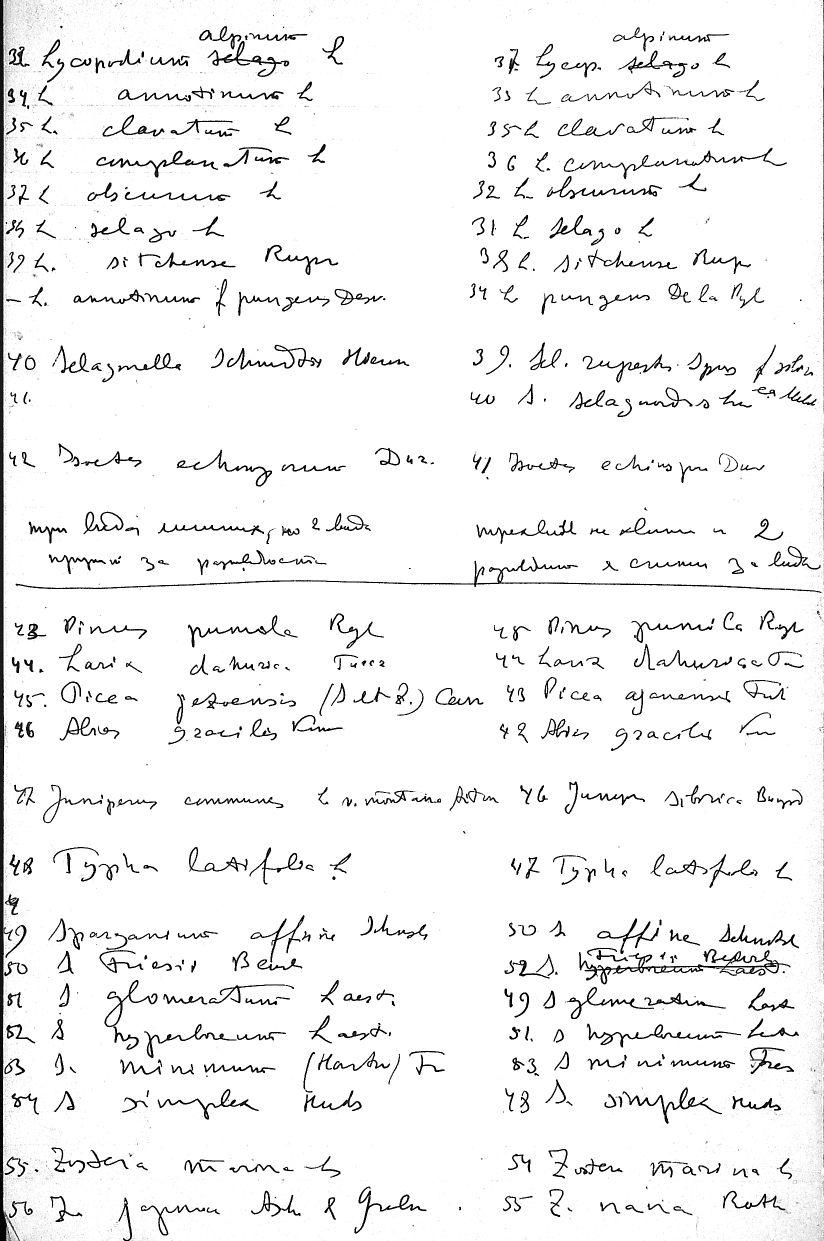 alpinum alpinum
33 Lycopodium selago L 37. Lycop. selago L
34 L annotinum L 33 L annotinum L
35 L. clavatum L 35 L clavatum L
36 L complanatum L 36 L. complanatum L
37 L obscurum L 32 L. obscurum L
38 L selago L 31 L selago L
39 L. sitchense Rupr 38 L. sitchense Rupr
– L. annotinum f pungens Desv. 34 L pungens De la Pyl
40 Selaginella Hieron 39. Sel. rupestris Spring f
41. 40 S. selaginoides
42 Isoetes Dur. 41 Isoetes Dur
три вида лишних, но 2 вида 2
за за вида
43 Pinus pumila Rgl 45 Pinus pumila Rgl
44. Larix dahurica Turcz 44 Larix dahurica
45. Picea jezoensis (S et Z.) Carr 43 Picea ajanensis
46 Abies gracilis Kom 42 Abies gracilis Kom
47 Juniperus communis L v. montana Aiton 46 Junip sibirica Burgsd
48 Typha latifolia L 47 Typha latifolia L
49 Sparganium affine Schnizl 50 S affine Schnizl
Friesii Beurl
50 S Friesii Beurl 52 S. hyperboreum Laest.
51 S glomeratum Laest. 49 S glomeratum Laest
52 S hyperboreum Laest. 51. S hyperboreum Laest
53 S. minimum (Hartm) Fr 53 S minimum Fries
54 S simplex Huds 48 S. simplex Huds
55. Zostera marina L 54 Zostera marina L
56 Z. japonica Asch & Graebn . 55 Z. nana Roth